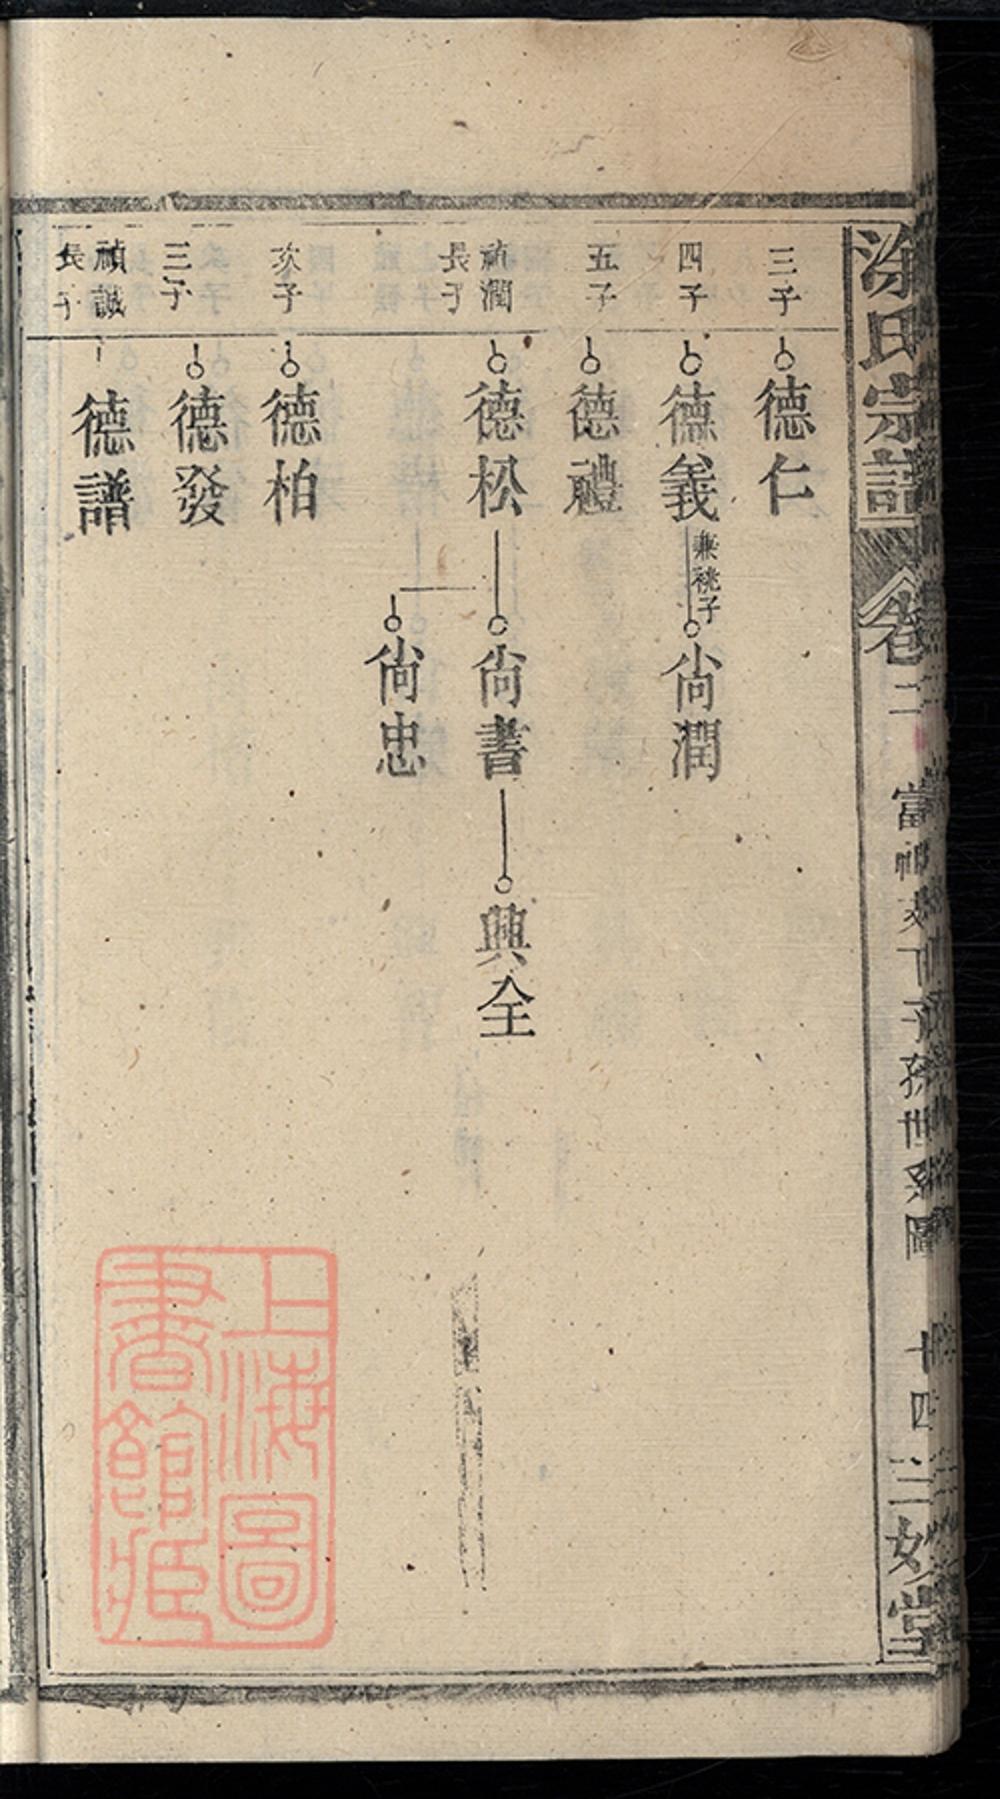 氏宗譜 卷二 當 支下子孫世系圖 十四 三 堂
三子
德仁
四子
德義
兼祧子
尚潤
五子
德禮
禎潤
長子
德松
尚書
興全
尚忠
次子
德柏
三子
德發
禎誠
長子
德譜
上海圖
書館藏